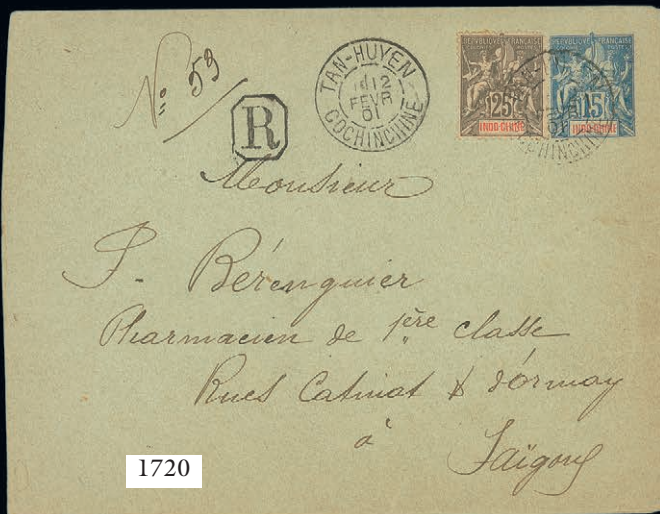 No 59
R
TAN-HUYEN
12
FEVR
01
COCHINCHINE
REPUBLIQUE FRANÇAISE
COLONIES POSTES
25
INDO-CHINE
REPUBLIQUE FRANÇAISE
15
INDO-CHINE
01
COCHINCHINE
Monsieur
P. Bérenguier
Pharmacien de 1ère classe
Rues Catinat & d'Ormay
à
Saïgon
1720